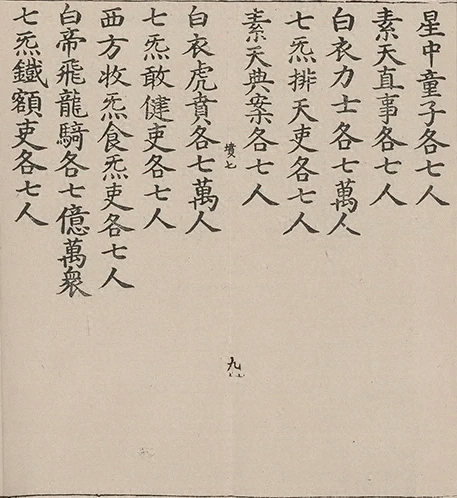 星中童子各七人
素天直事各七人
白衣力士各七萬人
七炁排天吏各七人
素天典案各七人
墳七
九
白衣虎賁各七萬人
七炁敢健吏各七人
西方收炁食炁吏各七人
白帝飛龍騎各七億萬衆
七炁鐵額吏各七人